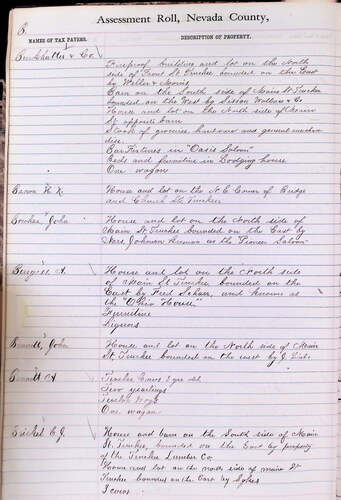 Assessment Roll, Nevada County,
B.
NAMES OF TAX PAYERS.
DESCRIPTION OF PROPERTY.
Burkhalter & Co.
Fireproof building and lot on the North
side of Front St Truckee bounded on the East
by Weller & Morris
Barn on the South side of Main St Truckee
bounded on the West by Sisson Wallace & Co
House and lot on the North side of Main
St opposite barn
Stock of groceries, hardware and general merchan
dise.
Bar Fixtures in "Oasis Saloon"
Beds and furniture in Lodging house
One wagon
House and lot on the N.E. Corner of Bridge
and Church Sts Truckee
John
House and lot on the North side of
Main St Truckee bounded on the East by
Johnson Known as the "Pioneer Saloon"
House and lot on the North side
of Main St Truckee bounded on the
East by Fred and Known as
the "Ohio House"
Furniture
Liquors
Bennett, John
House and lot on the North side of Main
St Truckee bounded on the west by J.
Bennett A
Twelve Cows 3 yrs old
Two yearlings
Twelve Hogs
One wagon
Bickel E. J.
House and barn on the South side of Main
St. Truckee, bounded on the East by property
of the Truckee Lumber Co
House and lot on the north side of main St
Truckee bounded on the East by Sykes
3 cows